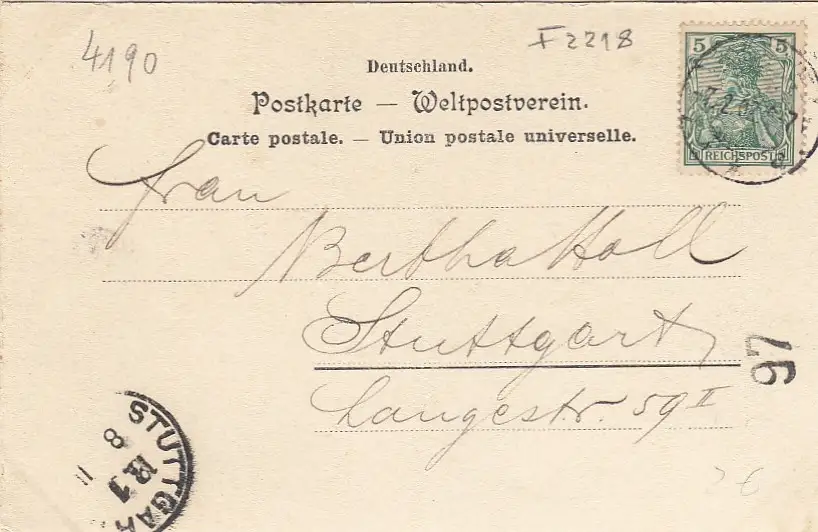 4190
F 2218
5 5
REICHSPOST
Deutschland.
Postkarte — Weltpostverein.
Carte postale. — Union postale universelle.
Frau
Bertha Holl
Stuttgart
Langestr. 59 II
97
STUTTGAR
8
R1
2 €